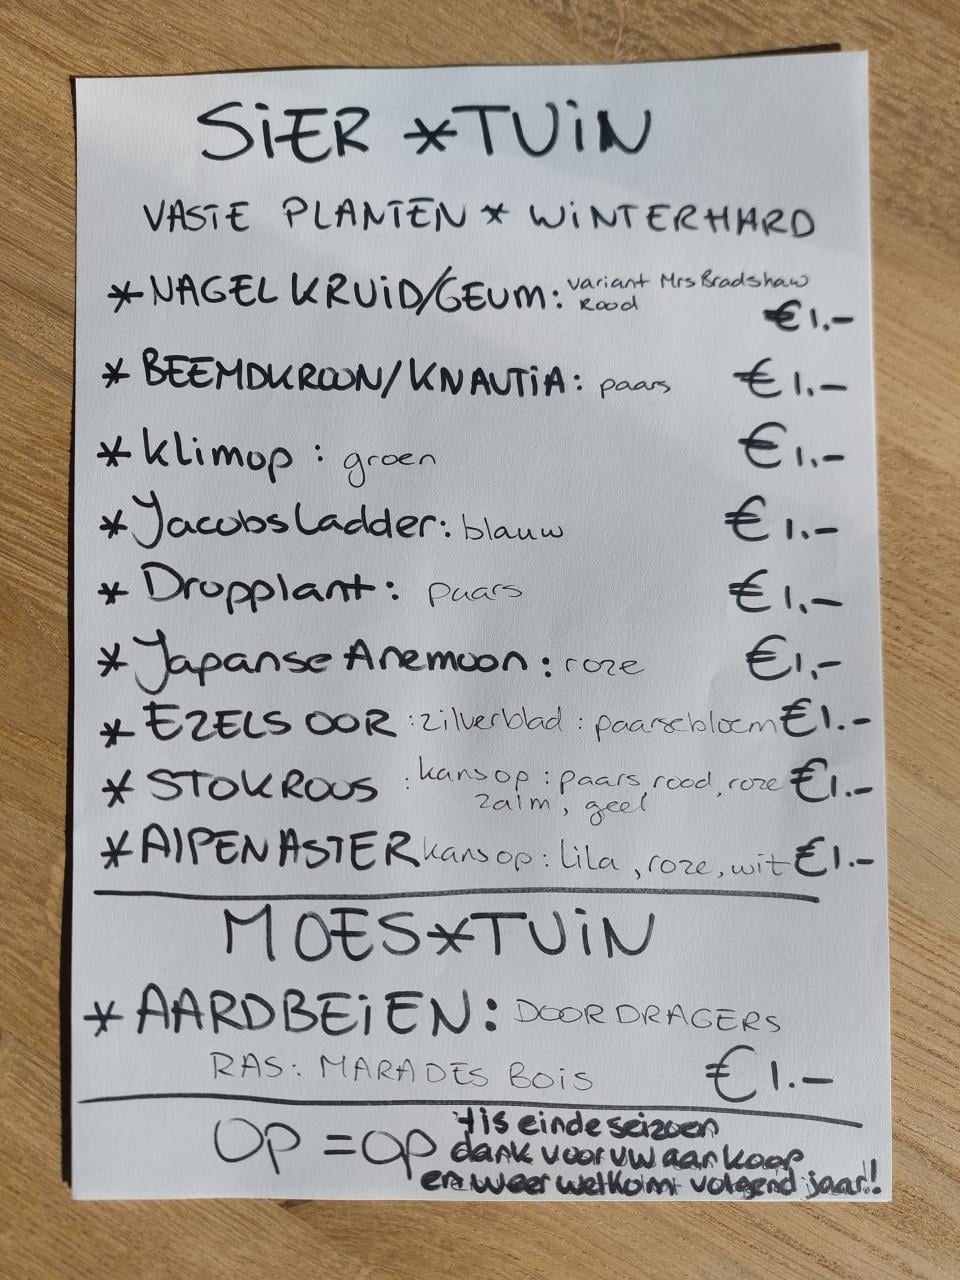 SiER *TUiN
VASTE PLANTEN * WiNTERHARD
* NAGELKRUiD/GEUM: variant Mrs Bradshaw
Rood
€1.-
* BEEMDKROON/KNAUTiA: paars €1.-
* Klimop: groen €1.-
* Jacobsladder: blauw €1.-
* Dropplant: paars €1.-
* Japanse Anemoon: roze €1.-
* EZELSOOR: zilverblad: paarsebloem €1.-
* STOKROOS: kans op: paars, rood, roze €1.-
zalm, geel
* AlPENASTER kans op: lila, roze, wit €1.-
MOES*TUiN
* AARDBEiEN: DOORDRAGERS
RAS: MARA DES BOiS €1.-
OP = OP
't is einde seizoen
dank voor uw aankoop
en weer welkom volgend jaar!